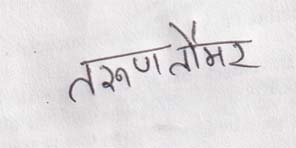 तरूण तौमर